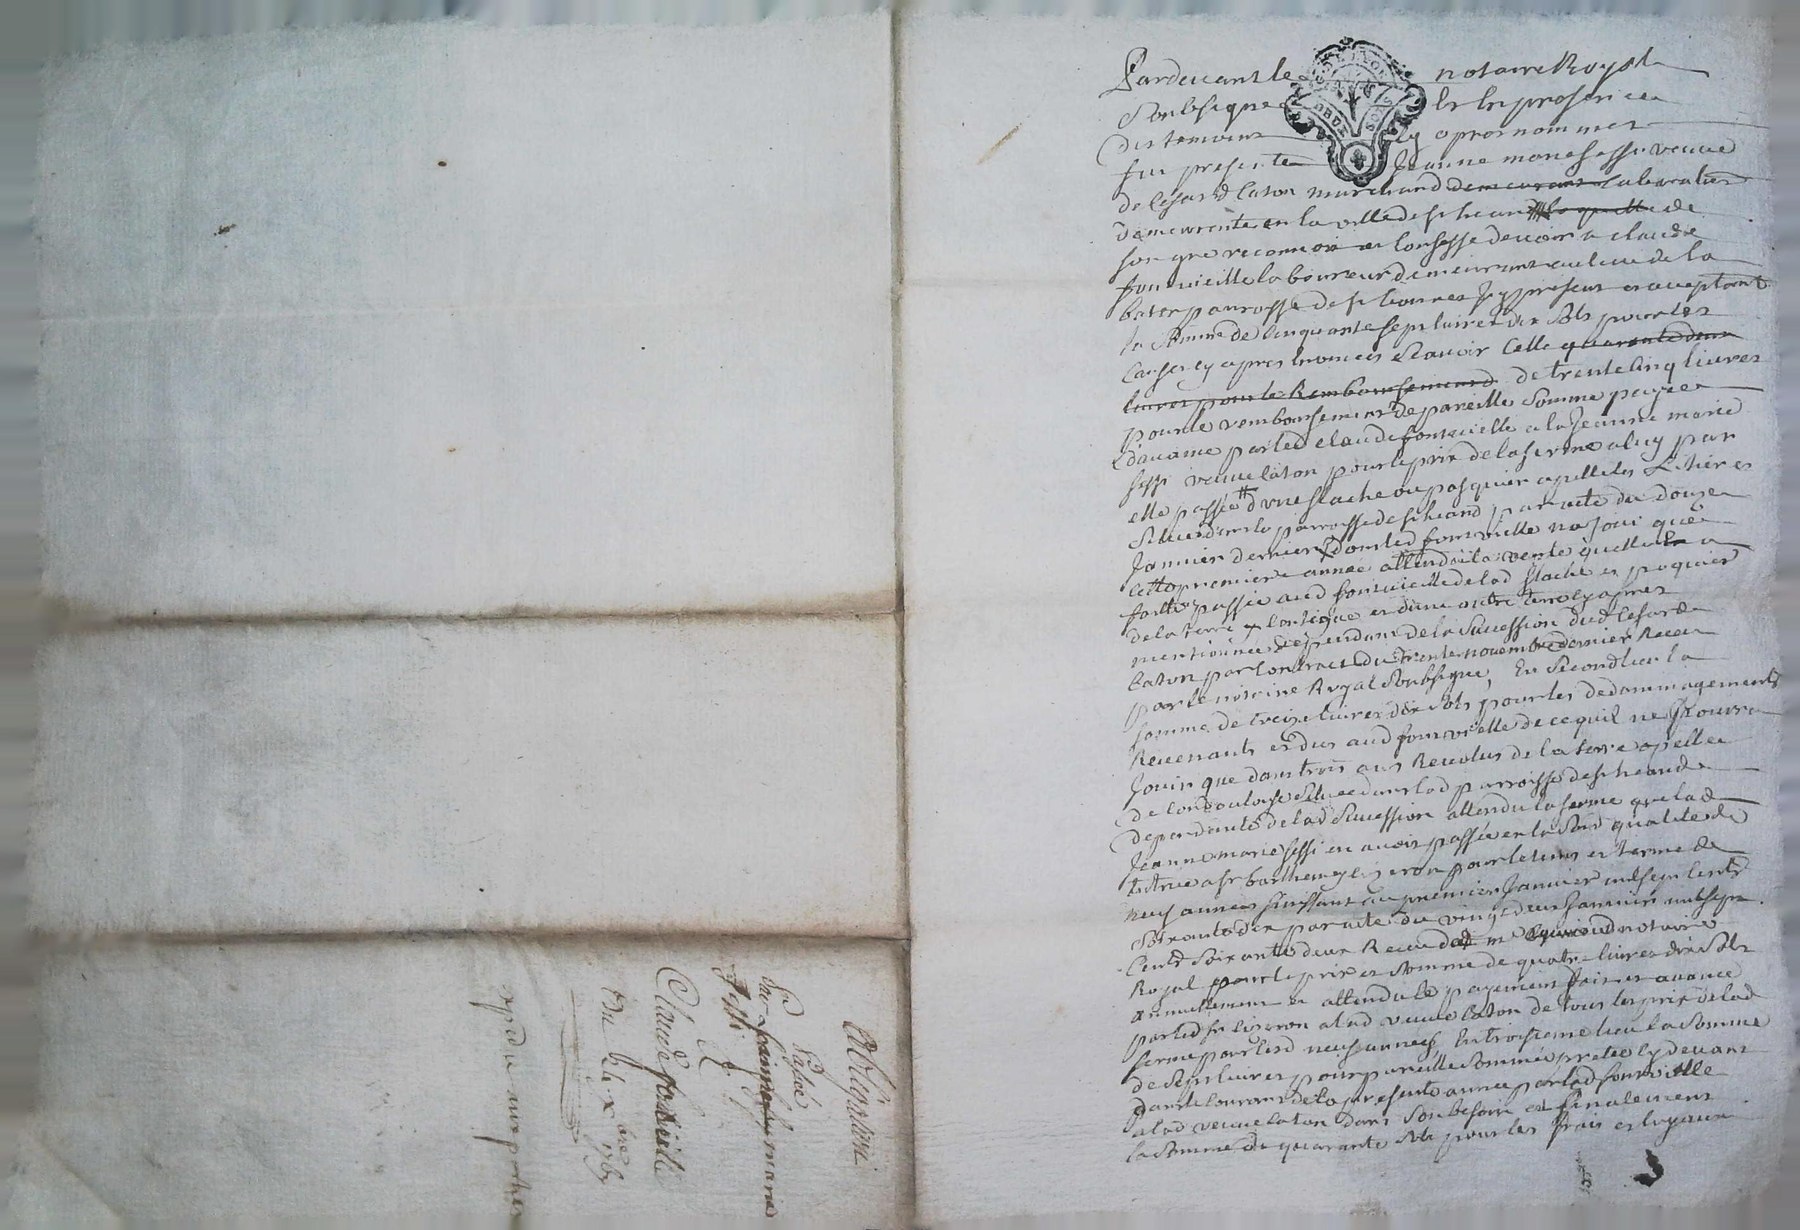 Pardevant le notaire Royal
Soubsigné & en presence
des temoins cy apres nommes
fut presente Jeanne marie sessi veuve
de Cesard Caton marchand demeurant
demeurante en la ville de st heand laquelle de
son gre reconnoit et confesse devoir a claude
fontvieille laboureur demeurant au lieu de la
parroisse de st bonnet Icy present et acceptant
la somme de cinquante sept livres dix sols pour les
causes cy apres enoncées scavoir Celle quarante deux
livres pour le Remboursement de trente cinq livres
pour le remboursement de pareille somme payée
davance par led claude fontvieille a lad Jeanne marie
sessi veuve Caton pour le prix de la ferme a luy par
elle passée d'une flache ou pasquier apellé les Litieres
Situé dans la parroisse de st heand par acte du douze
Janvier dernier dont led fontvieille na Joui que
cette premiere année attendu la vente quelle a
faitte passée aud fontvieille de lad flache et paquier
de la terre y contigue et d'une autre terre cy apres
mentionnée dependant de la succession dud Cesard
Caton par contract du trente novembre dernier Receu
par le notaire Royal Soubsigné, En second lieu la
somme de treize livres dix sols pour les dedommagements
Revenants et dus aud fontvieille de ce quil ne poura
Jouir que dans trois ans Revolus de la terre apellée
de Située dans lad parroisse de st heand
dependante de lad Succession attendu la ferme que lad
Jeanne marie sessi en avoit passée en la qualité de
tutrice a sr barthemy pour le tems et terme de
neuf années finissant au premier Janvier mil sept cents
soixante dix par acte du vingt deux Janvier mil sept
Cents soixante deux Receu de me notaire
Royal pour le prix et somme de quatre livres dix sols
annuellement et attendu le payement fait et avancé
par led sr a lad veuve Caton de tous les prix de lad
ferme pour lesd neuf années, En troisieme lieu la somme
de sept livres pour pareille somme pretée cy devant
dans le courant de la presente année par led fontvieille
a lad veuve Caton dans son besoin et finalement
la somme de quarante sols pour les frais et loyaux
Obligation
Passé
Par Jeanne marie
sessi
A
Claude fontvieille
Du 24 xbre 1767